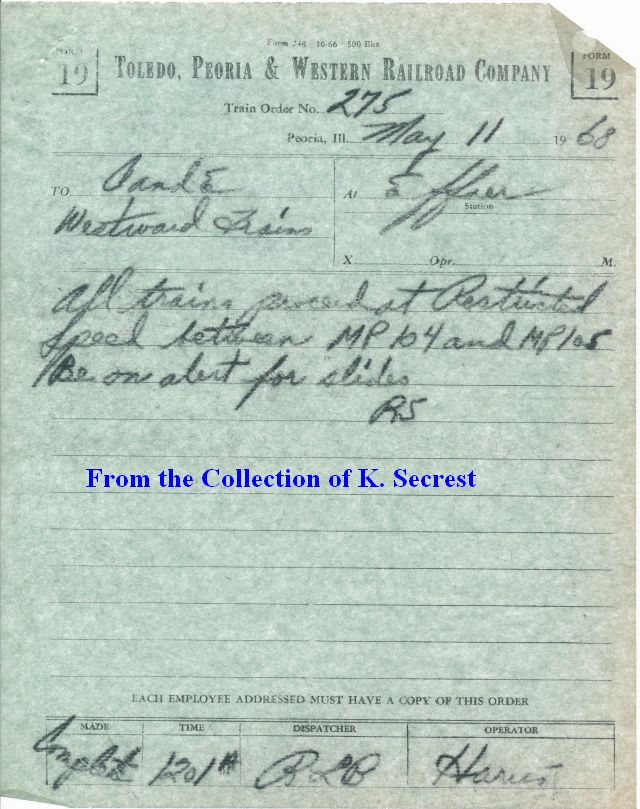 Form 246 10-66 500 Bks
FORM 19
TOLEDO, PEORIA & WESTERN RAILROAD COMPANY
FORM 19
Train Order No. 275
Peoria, Ill. May 11 1968
TO C and E At Effner
Station
Westward Trains
X Opr. M.
All trains proceed at Restricted
speed between MP 104 and MP 105
Be on alert for slides
From the Collection of K. Secrest
EACH EMPLOYEE ADDRESSED MUST HAVE A COPY OF THIS ORDER
MADE TIME DISPATCHER OPERATOR
Complete 1201